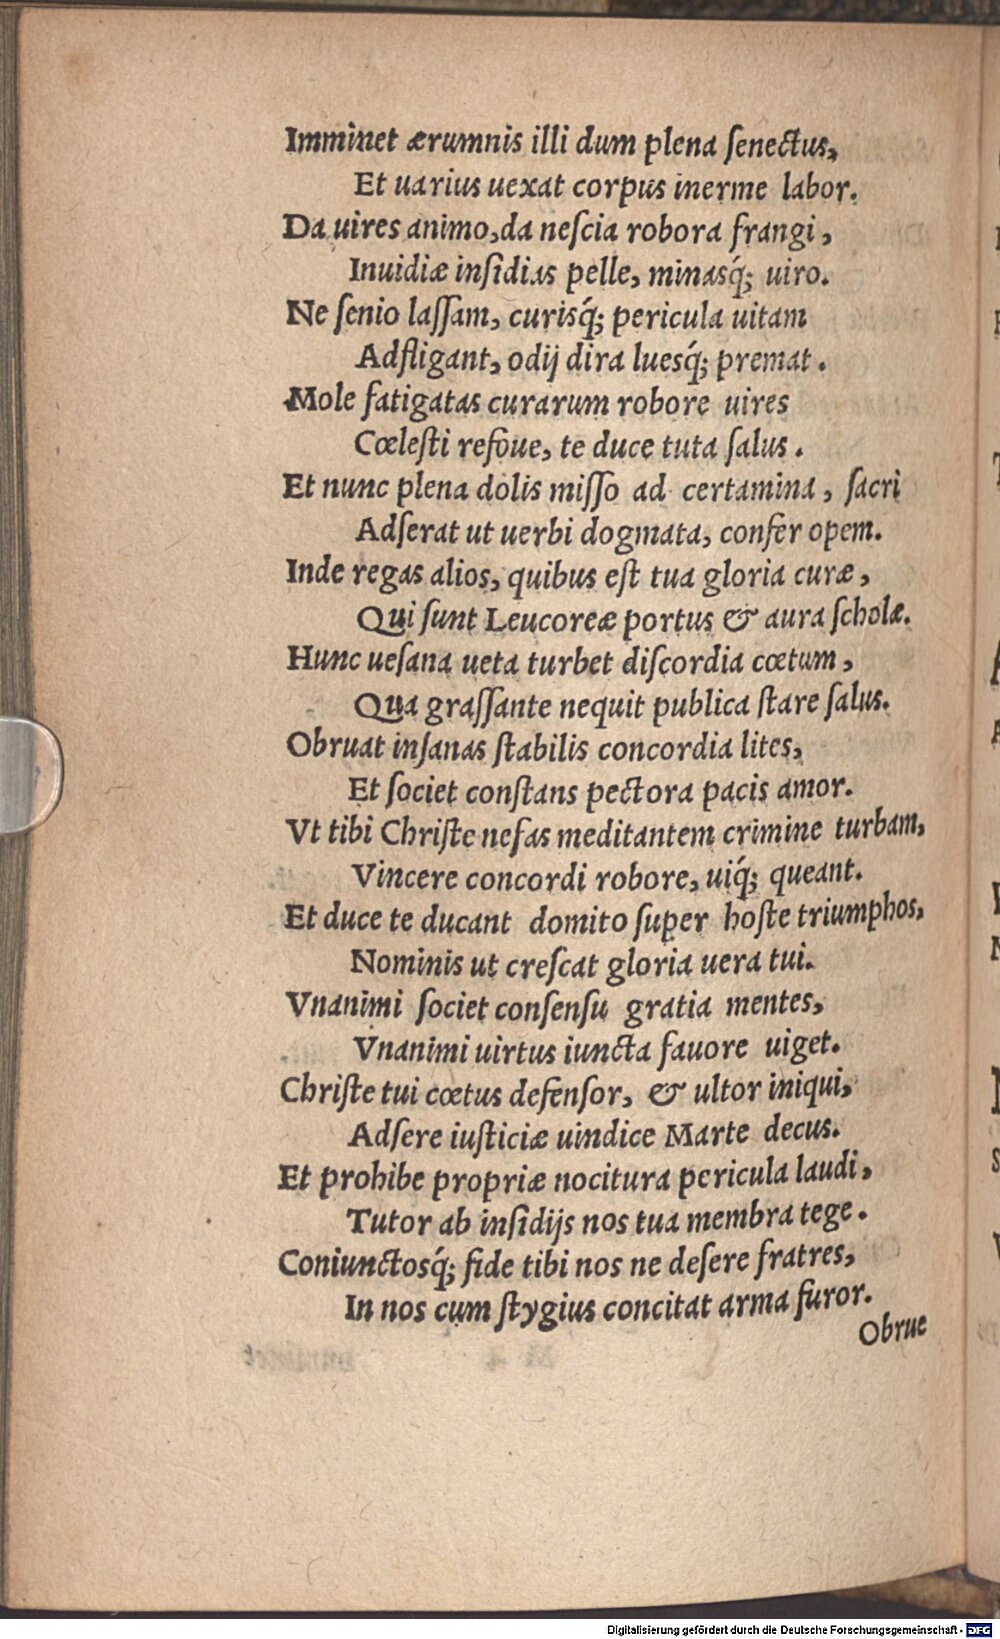 Imminet ærumnis illi dum plena ſenectus,
Et uarius uexat corpus inerme labor.
Da uires animo, da neſcia robora frangi,
Inuidiæ inſidias pelle, minasq́; uiro.
Ne ſenio laſſam, curisq́; pericula uitam
Adfligant, odij dira luesq́; premat.
Mole fatigatas curarum robore uires
Cœleſti refoue, te duce tuta ſalus.
Et nunc plena dolis miſſo ad certamina, ſacri
Adſerat ut uerbi dogmata, confer opem.
Inde regas alios, quibus eſt tua gloria curæ,
Qui ſunt Leucoreæ portus & aura ſcholæ.
Hunc ueſana ueta turbet diſcordia cœtum,
Qua graſſante nequit publica ſtare ſalus.
Obruat inſanas ſtabilis concordia lites,
Et ſociet conſtans pectora pacis amor.
Vt tibi Chriſte nefas meditantem crimine turbam,
Vincere concordi robore, uiq́; queant.
Et duce te ducant domito ſuper hoſte triumphos,
Nominis ut creſcat gloria uera tui.
Vnanimi ſociet conſenſu gratia mentes,
Vnanimi uirtus iuncta fauore uiget.
Chriſte tui cœtus defenſor, & ultor iniqui,
Adſere iuſticiæ uindice Marte decus.
Et prohibe propriæ nocitura pericula laudi,
Tutor ab inſidijs nos tua membra tege.
Coniunctosq́; fide tibi nos ne deſere fratres,
In nos cum ſtygius concitat arma furor.
Obrue
Digitalisierung gefördert durch die Deutsche Forschungsgemeinschaft - DFG